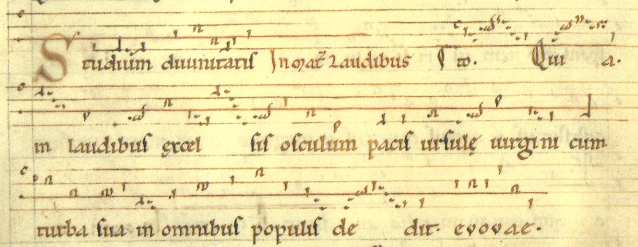 Studium diuinitatis In Mat̃ Laudibus Pꝰ to. Qui a.
in laudibus excel sis osculum pacis ursulę uirgini cum
turba sua in omnibus populis de dit. evovae.